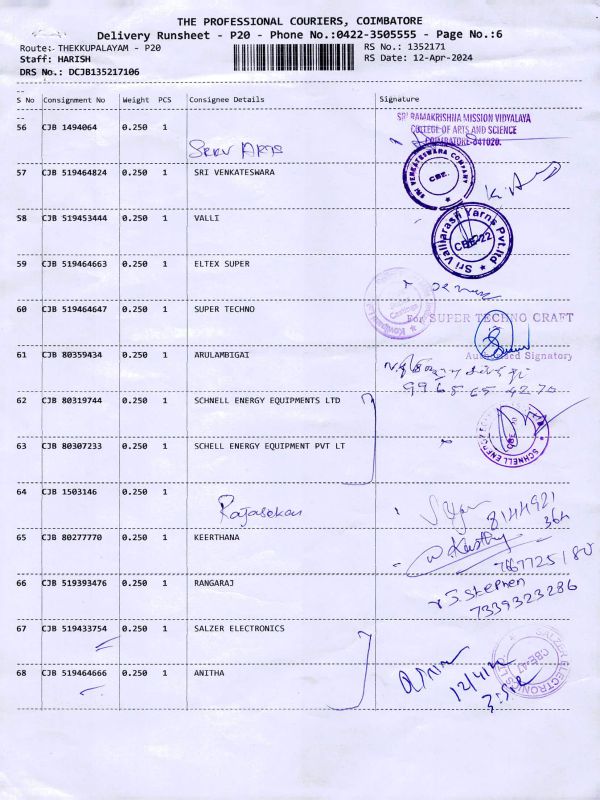 THE PROFESSIONAL COURIERS, COIMBATORE
Delivery Runsheet - P20 - Phone No.:0422-3505555 - Page No.:6
Route:- THEKKUPALAYAM - P20
RS No.: 1352171
Staff: HARISH
RS Date: 12-Apr-2024
DRS No.: DCJB135217106
--
S No Consignment No Weight PCS Consignee Details Signature
--
56 CJB 1494064 0.250 1
SRI RAMAKRISHNA MISSION VIDYALAYA
COLLEGE OF ARTS AND SCIENCE
COIMBATORE-641020.
57 CJB 519464824 0.250 1 SRI VENKATESWARA
SRI VENKATESWARA COMPANY
CBE.
58 CJB 519453444 0.250 1 VALLI
Sri Valliarash Yarns Pvt.ltd
CBE-22
59 CJB 519464663 0.250 1 ELTEX SUPER
60 CJB 519464647 0.250 1 SUPER TECHNO
For SUPER TECHNO CRAFT
Authorised Signatory
61 CJB 80359434 0.250 1 ARULAMBIGAI
62 CJB 80319744 0.250 1 SCHNELL ENERGY EQUIPMENTS LTD
63 CJB 80307233 0.250 1 SCHELL ENERGY EQUIPMENT PVT LT
SCHNELL ENERGY
64 CJB 1503146 0.250 1
Rajasekar
65 CJB 80277770 0.250 1 KEERTHANA
66 CJB 519393476 0.250 1 RANGARAJ
J. Stephen
7339323286
67 CJB 519433754 0.250 1 SALZER ELECTRONICS
SALZER ELECTRONICS
CBE-47
68 CJB 519464666 0.250 1 ANITHA